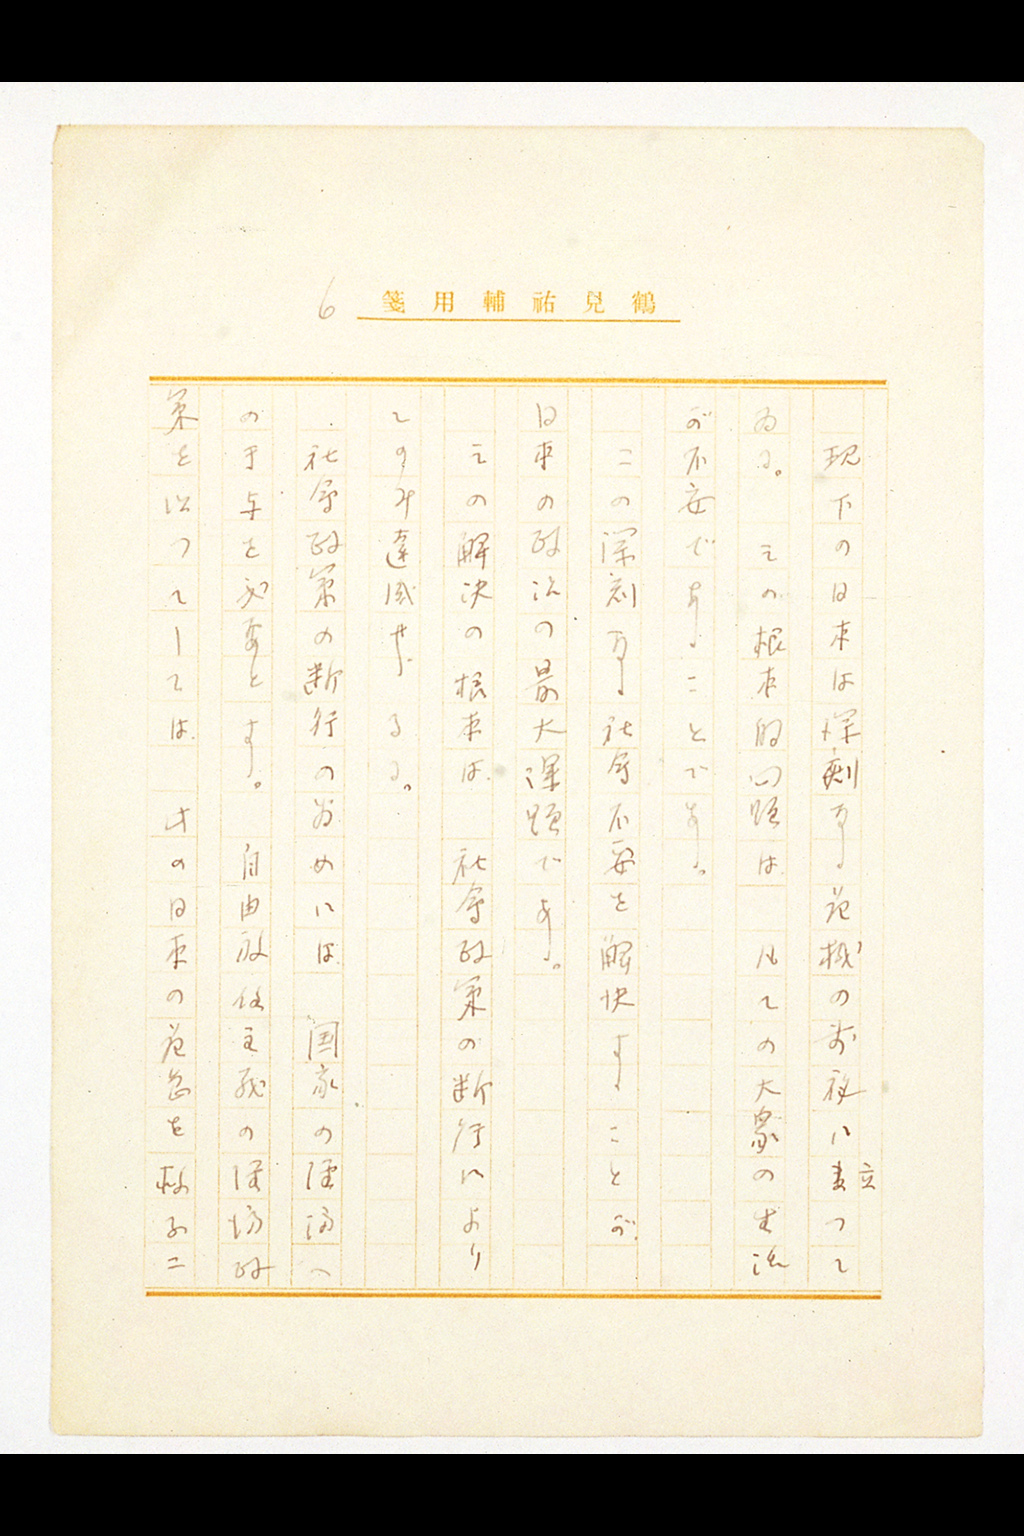 6
鶴見祐輔用箋
現下の日本は深刻なる危機の前夜に立つて
ゐる。その根本的問題は 凡ての大衆の生活
が不安であることである。
この深刻なる社会不安を解決することが
日本の政治の最大課題である。
その解決の根本は 社会政策の断行により
てのみ達成せらるる。
社会政策の断行のためには 国家の経済へ
の干与を必要とする。 自由放任主義の経済政
策を以つてしては 今の日本の危急を救ふこ